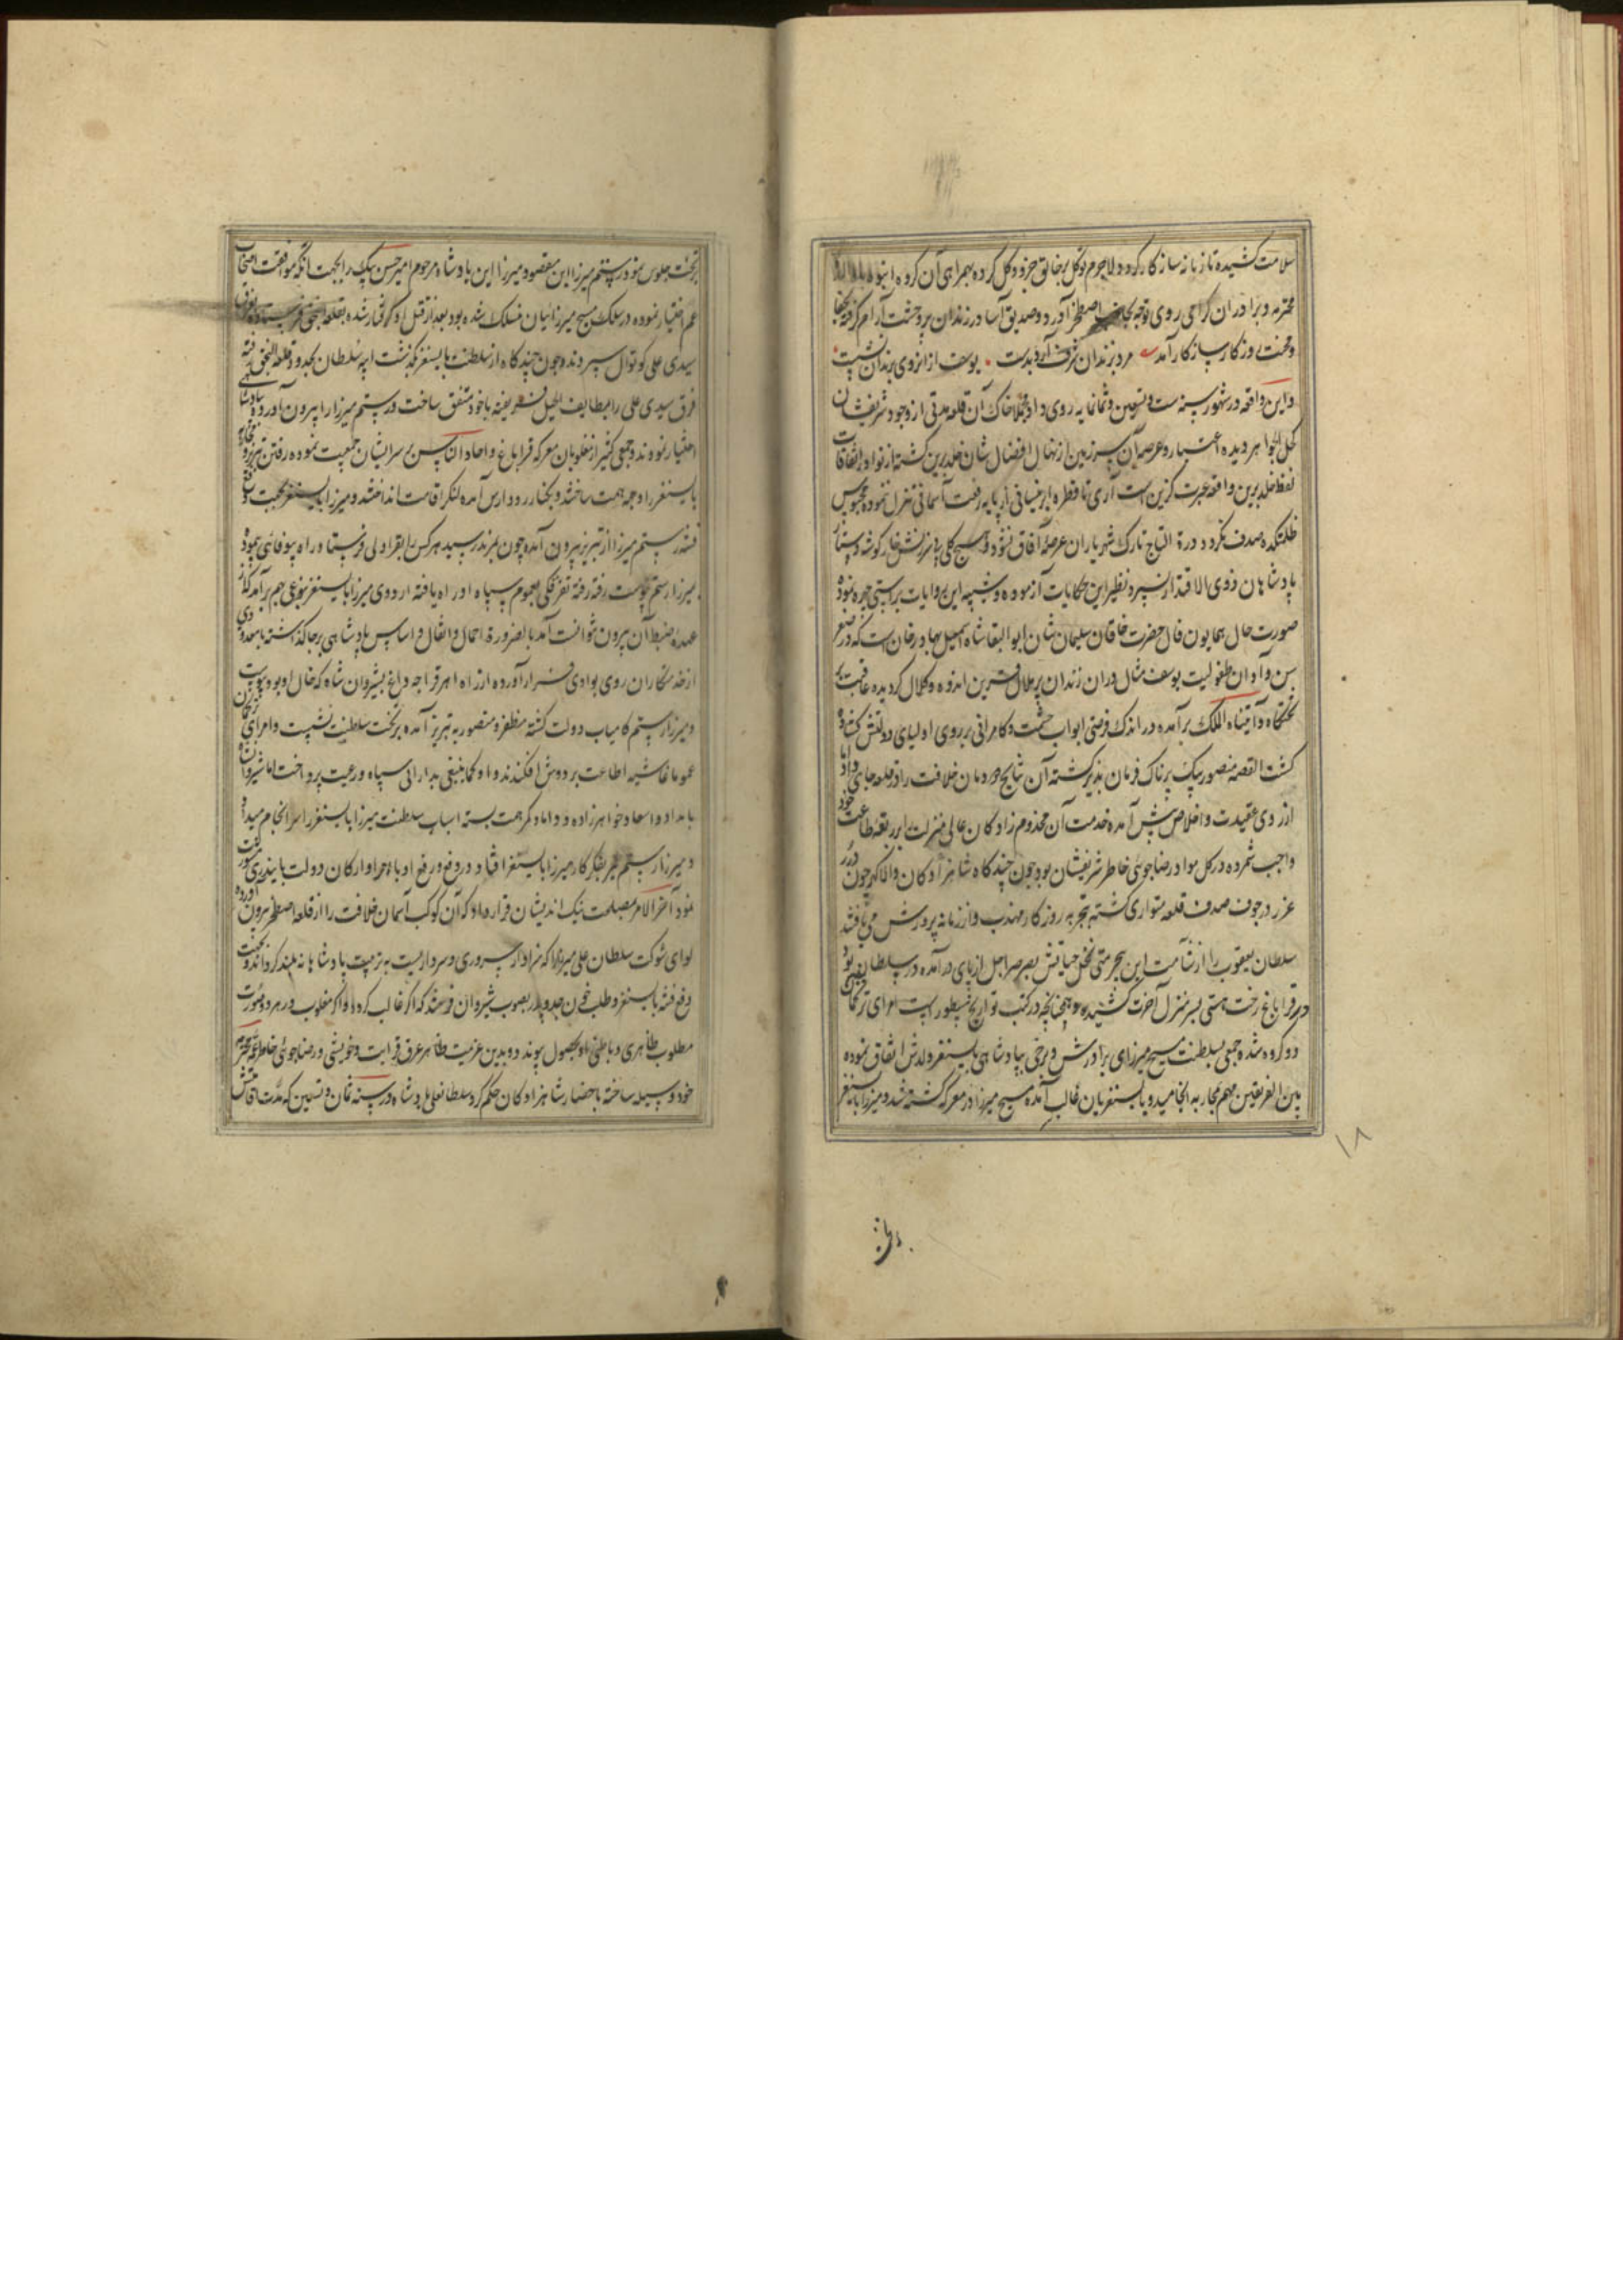 سلامت کشیده تا زبانه سازگار کردد ولاجرم توکل بر خالق جزو و کل کرده بهمراهی آن کروه انبوه
محترمه و برادران گرامی روی توجه بجانب اصطخر آورد و صدیق آسا در زندان پر وحشت آرام گرفته بجفا
و محنت روزکار سازکار آمد مرد بزندان شرف آرد بدست یوسف از ان روی بزندان نشست
و این واقعه در شهور سنه ست و تسعین و ثمانمایه روی داد و خاک آن قلعه مدتی از وجود شریفشان
کحل الجواهر دیده اعتبار و عرصه آن سرزمین از نهال افضال شان خلد برین کشته از نوادر اتفاقات
لفظ خلد برین واقعه عبرت کزین است آری تا قطره نیسانی از پایه رفعت آسمانی تنزل ننموده محبوس
ظلمتکده صدف نکردد درة التاج تارک شهریاران عرصه آفاق نشود و هیچ کلی بی سرزنش خار کوشه دستار
پادشاهان ذوی الاقتدار نسپرد نظیر این حکایات آزموده و شبیه این روایات براستی چهره نموده
صورت حال همایون فال حضرت خاقان سلیمان شان ابو البقا شاه اسمعیل بهادر خان است که در صغر
سن و اوان طفولیت یوسف مثال در ان زندان پر ملال قرین اندوه و کلال کردیده عاقبت بر
تختگاه و آتیناه الملک برآمده در اندک فرصتی ابواب حشمت و کامرانی بر روی اولیای دولتش کشاده
کشت القصه منصور بیک پرناک فرمان پذیر کشته آن نتایج دودمان خلافت را در قلعه جای داد اما
از روی عقیدت و اخلاص پیش آمده خدمت آن مخدوم زادکان عالی منزلت را بر ربقه طاعت خود
واجب شمرده در کل مواد رضا جوئی خاطر شریفشان بود چون چند کاه شاهزادکان والا کهر چون درر
غرر در جوف صدف قلعه متواری کشته بتجربه روزکار مهذب و از زمانه پرورش می یافتند
سلطان یعقوب را از شآمت این بیحرمتی نخل حیاتش بصرصر اجل از پای درآمده در سلطان بود
در قراباغ رخت هستی بسر منزل آخرت کشید و چنانچه در کتب تواریخ مسطور است امرای ترکمان
دو کروه شده جمعی بسلطنت مسیح میرزای برادرش و برخی بپادشاهی بایسنغر ولدش اتفاق نموده
بین الفریقین مهم بمحاربه انجامید و بایسنغریان غالب آمده مسیح میرزا در معرکه کشته شد و میرزا بایسنغر
۱۸
برتخت
بر تخت جلوس نمود رستم میرزا ابن مقصود میرزا ابن پادشاه مرحوم امیر حسن بیک را بجهت آنکه موافقت اصحاب
عم اختیار نموده در سلک مسیح میرزائیان منسلک شده بود بعد از قتل او کرفتار شده بقلعه النجق فرستاده
سیدی علی کوتوال سپردند و چون چند کاه از سلطنت بایسنغر بگذشت ایبه سلطان بحدود قلعه النجق رفته
فرق سیدی علی را بلطایف الحیل فریفته با خود متفق ساخت و رستم میرزا را بیرون آورده بپادشاهی
اختیار نمودند و جمعی کثیر از مغلوبان معرکه قراباغ و احاد الناس بر سر ایشان جمعیت نموده رفتن تبریز و محاربه
بایسنغر را وجهه همت ساختند و بکنار رود ارس آمده لنکر اقامت انداختند و میرزا بایسنغر بجهت دفع
فتنه رستم میرزا از تبریز بیرون آمده چون بمرند رسید هر کس را بقراولی فرستاد راه بیوفائی پیموده
بمیرزا رستم پیوست رفته رفته تفرقکی بعموم سپاه او راه یافته اردوی میرزا بایسنغر بنوعی بهم برآمد که از
عهده ضبط آن بیرون نتوانست آمد بالضروره احمال و اثقال و اساس پادشاهی بر جا گذاشته با معدودی
از خدمتکاران روی بوادی فرار آورده از راه اهر قراجه داغ بشیروان شاه که خال او بود پیوست
و میرزا رستم کامیاب دولت کشته مظفر و منصور به تبریز آمده بر تخت سلطنت نشست و امرای ترکمان
عموما غاشیه اطاعت بر دوش افکندند و او کما ینبغی بدارائی سپاه و رعیت پرداخت اما شیروانشاه
بامداد و اسعاد خواهرزاده و داماد کمر همت بسته اسباب سلطنت میرزا بایسنغر را سرانجام میداد
و میرزا رستم بفکر کار میرزا بایسنغر افتاد و در دفع و رفع او با امرا و ارکان دولت بایندری مشورت
نمود آخر الامر مصلحت نیک اندیشان قرار داد که آن کوکب آسمان خلافت را از قلعه اصطخر بیرون آورده
لوای شوکت سلطان علی میرزا را که سزاوار سروری و سرداریست به تربیت پادشاهانه بلند کردانند و بجهت
دفع فتنه بایسنغر و طلب خون جد و پدر بصوب شیروان فرستند که اگر غالب کردد و اگر مغلوب در هر دو صورت
مطلوب ظاهری و باطنی او بحصول پیوندد و بدین عزیمت ظاهر عرق قرابت و خویشی و رضا جوئی خاطر عمه محترمه
خود وسیله ساخته باحضار شاهزادکان حکم کرد سلطانعلی پادشاه در سنه ثمان و تسعین که مدت اقامتش